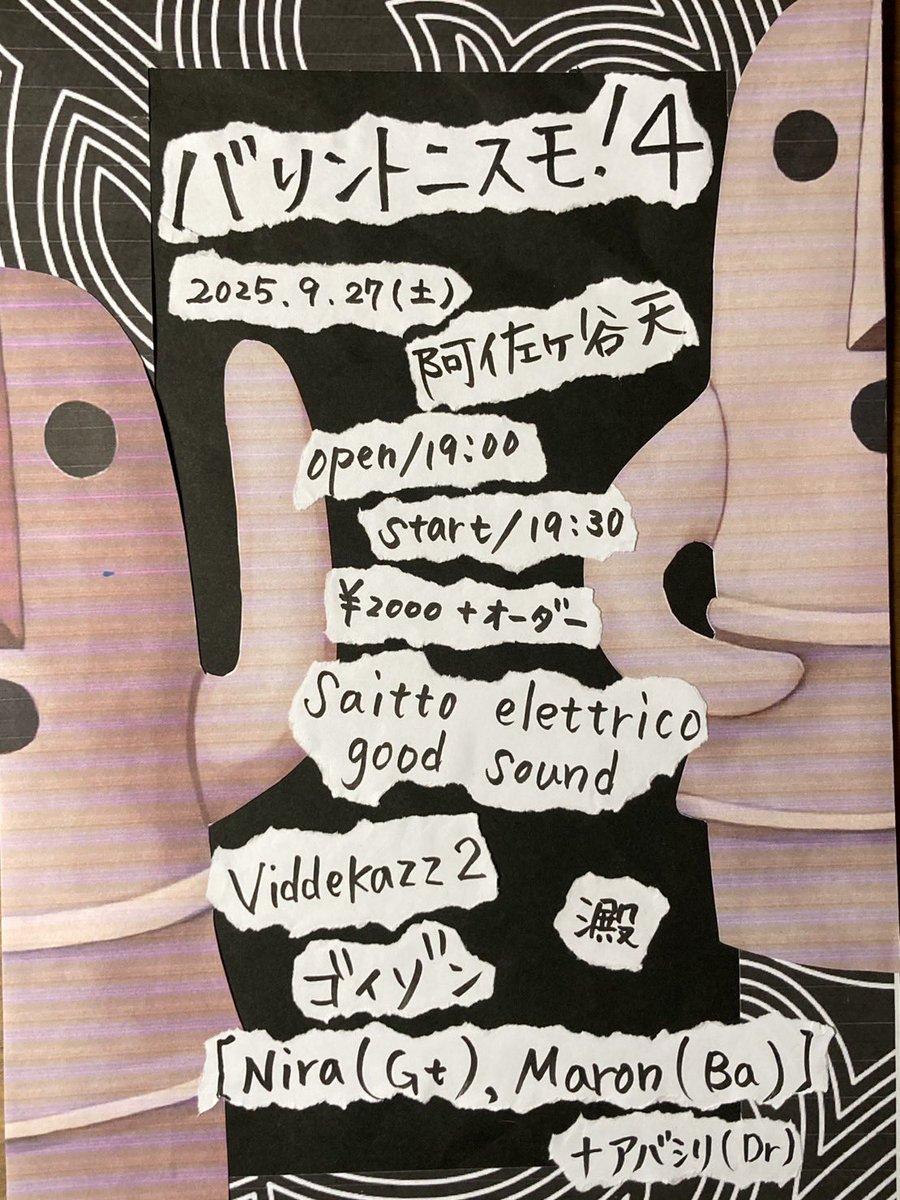 バリントニスモ!4
2025.9.27(土)
阿佐ヶ谷天
open/19:00
start/19:30
¥2000+オーダー
Saitto elettrico
good sound
Viddekazz2
澱
ゴィゾン
[Nira(Gt), Maron(Ba)]
+アバシリ(Dr)